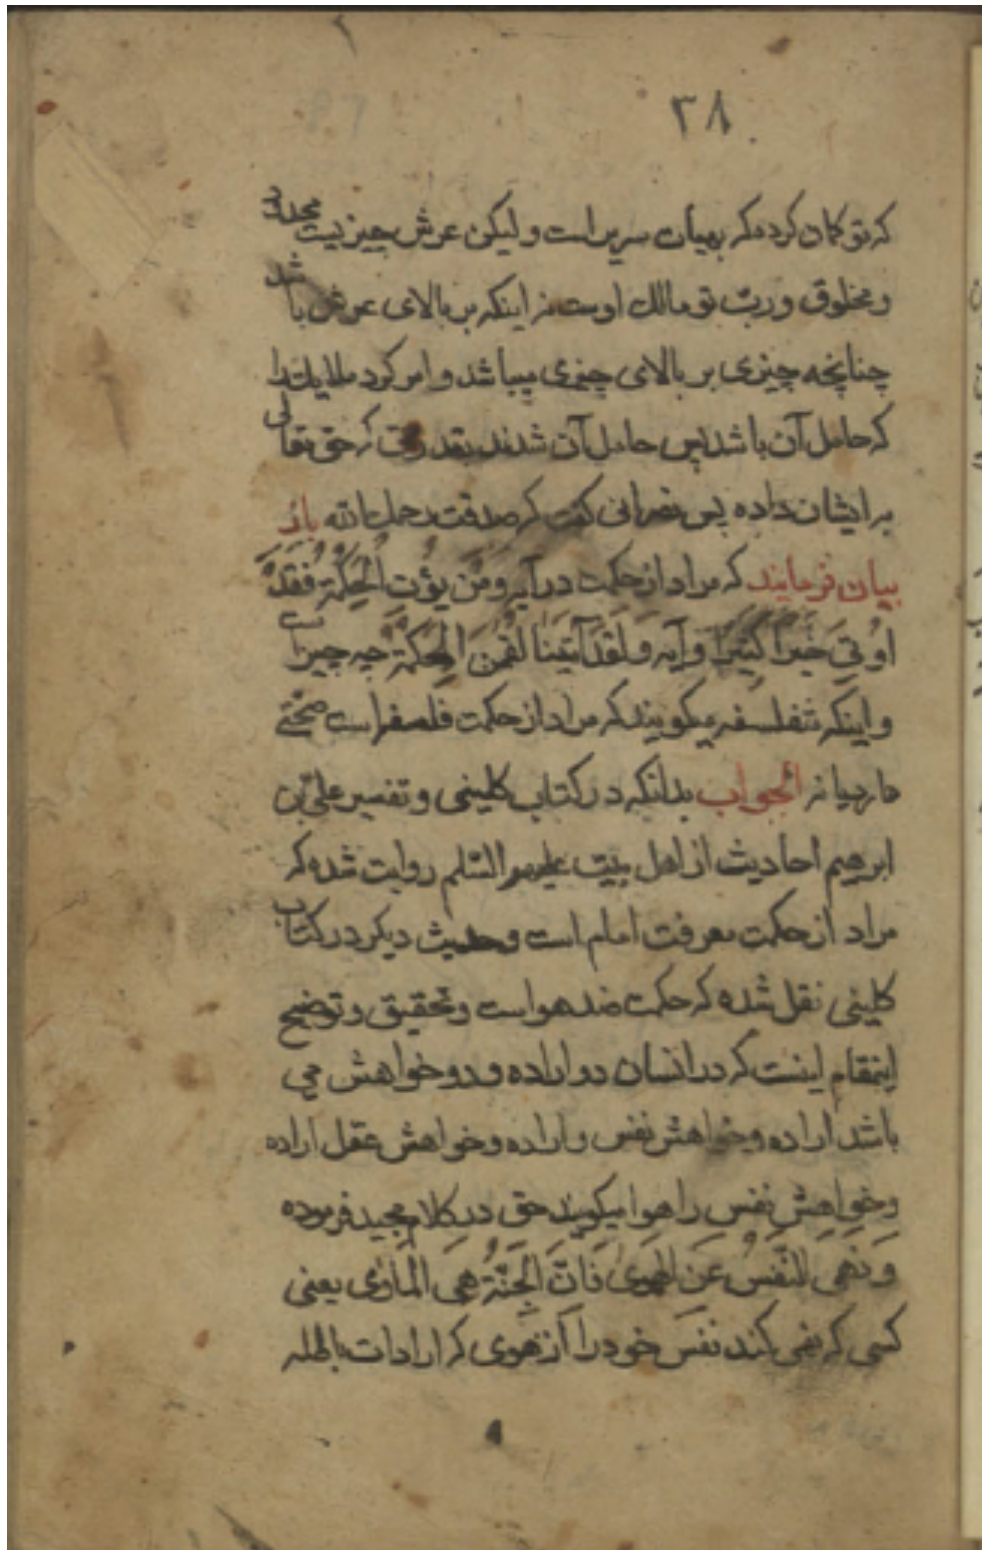 ٣٨
که تو کمان کرده که بهیأت سریر است و لیکن عرش چیزیست محدود
و مخلوق و ربّ تو مالک اوست نه اینکه بر بالای عرش باشد
چنانچه چیزی بر بالای چیزی میباشد و امر کرد ملایک را
که حامل آن باشد پس حامل آن شدند بقدرتی که حق تعالی
بر ایشان داده پس نصرانی کفت که صدقت رحمک الله باز
بیان فرمایند که مراد از حکمت در آیه وَمَن یُؤتَ الْحِکْمَةَ فَقَدْ
اُوتِیَ خَیْراً کَثِیراً و آیه وَلَقَدْ آتَیْنَا لُقْمٰنَ الْحِکْمَةَ چه چیز است
و اینکه متفلسفه میکویند که مراد از حکمت فلسفه است صحتی
دارد یا نه الجواب بدانکه در کتاب کلینی و تفسیر علی بن
ابرهیم احادیث از اهل بیت علیهم السّلم روایت شده که
مراد از حکمت معرفت امام است و حدیث دیکر در کتاب
کلینی نقل شده که حکمت ضد هواست و تحقیق و توضیح
اینمقام اینست که در انسان دو اراده و دو خواهش می
باشد اراده و خواهش نفس و اراده و خواهش عقل اراده
و خواهش نفس را هوا میکویند حق در کلام مجید فرموده
وَ نَهَی النَّفْسَ عَنِ الْهَوی فَاِنَّ الْجَنَّةَ هِیَ الْمَاْوٰی یعنی
کسی که نهی کند نفس خود را از هوی که ارادات باطله